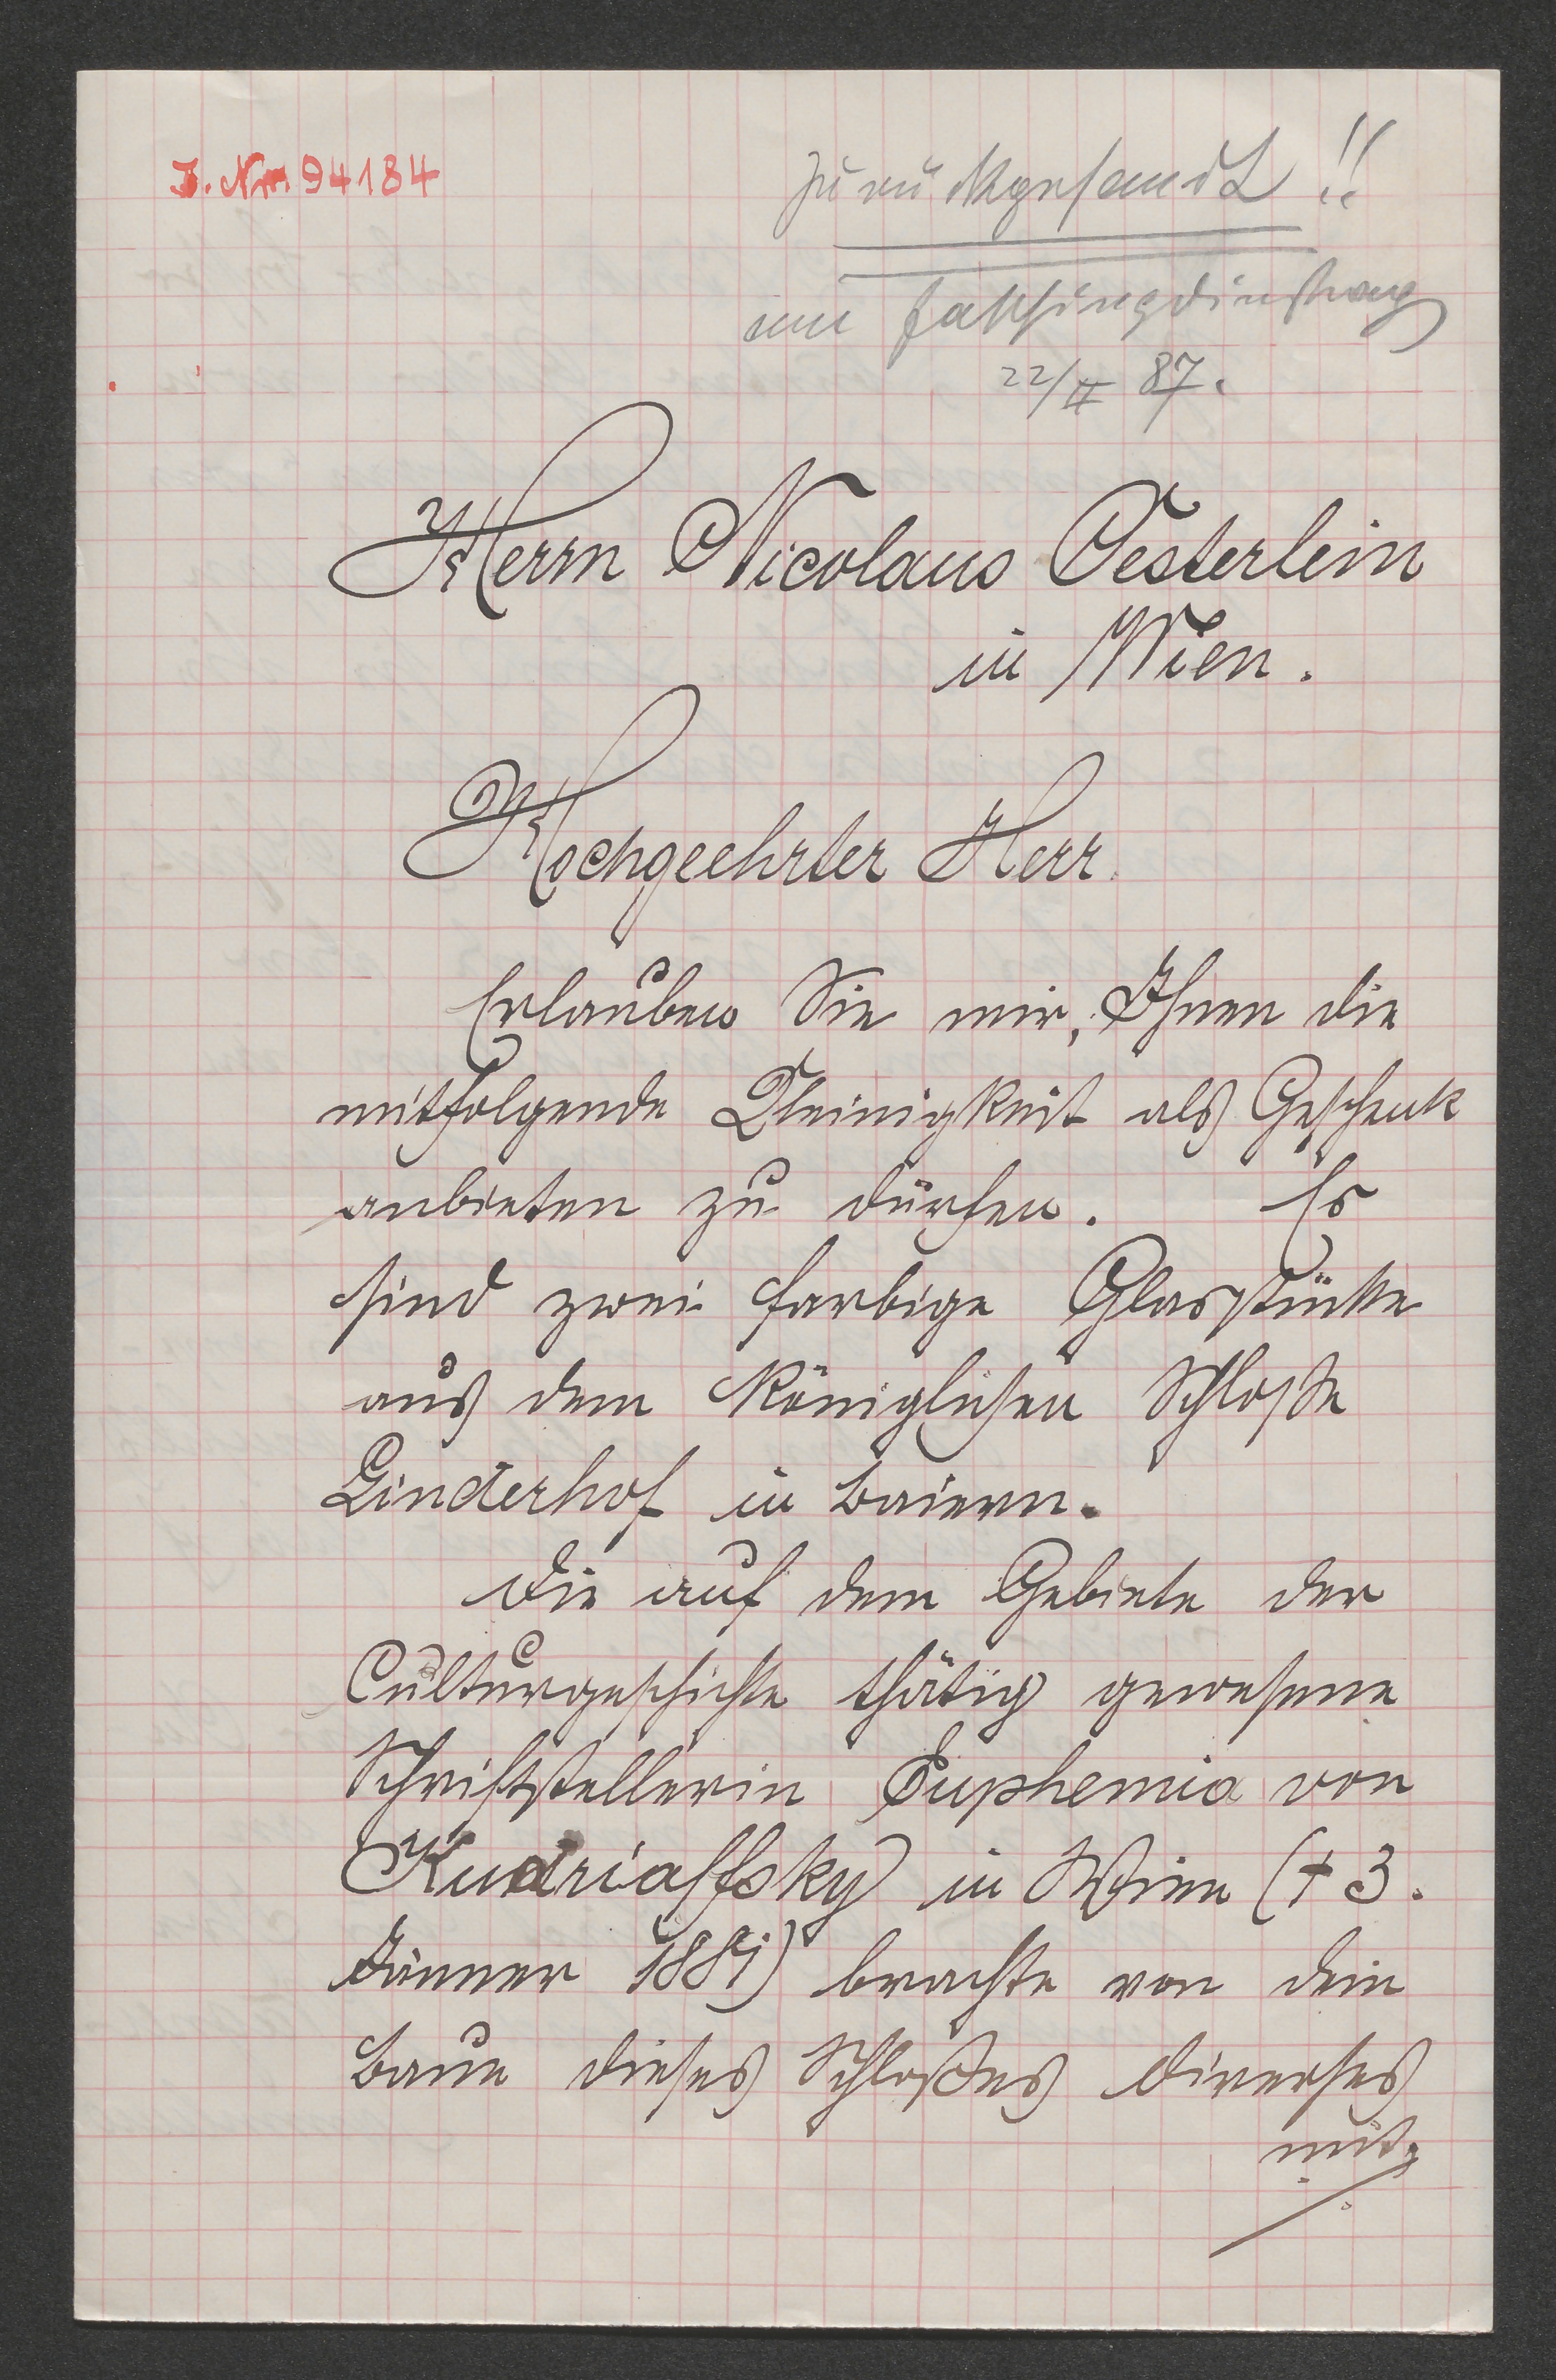 J. Nr. 94184
zurückgesandt !!
am Faschingdinstag
22/II 87.
Herrn Nicolaus Oesterlein
in Wien.
Hochgeehrter Herr.
Erlauben Sie mir, Ihnen die
mitfolgende Kleinigkeit als Geschenk
anbieten zu dürfen. Es
sind zwei farbige Glasstücke
aus dem königlichen Schloße
Linderhof in Baiern.
Die auf dem Gebiete der
Culturgeschichte thätig gewesene
Schriftstellerin Euphemia von
Kudriaffsky in Wien († 3.
Jänner 1881) brachte von dem
Baue dieses Schloßes diverses
mit.